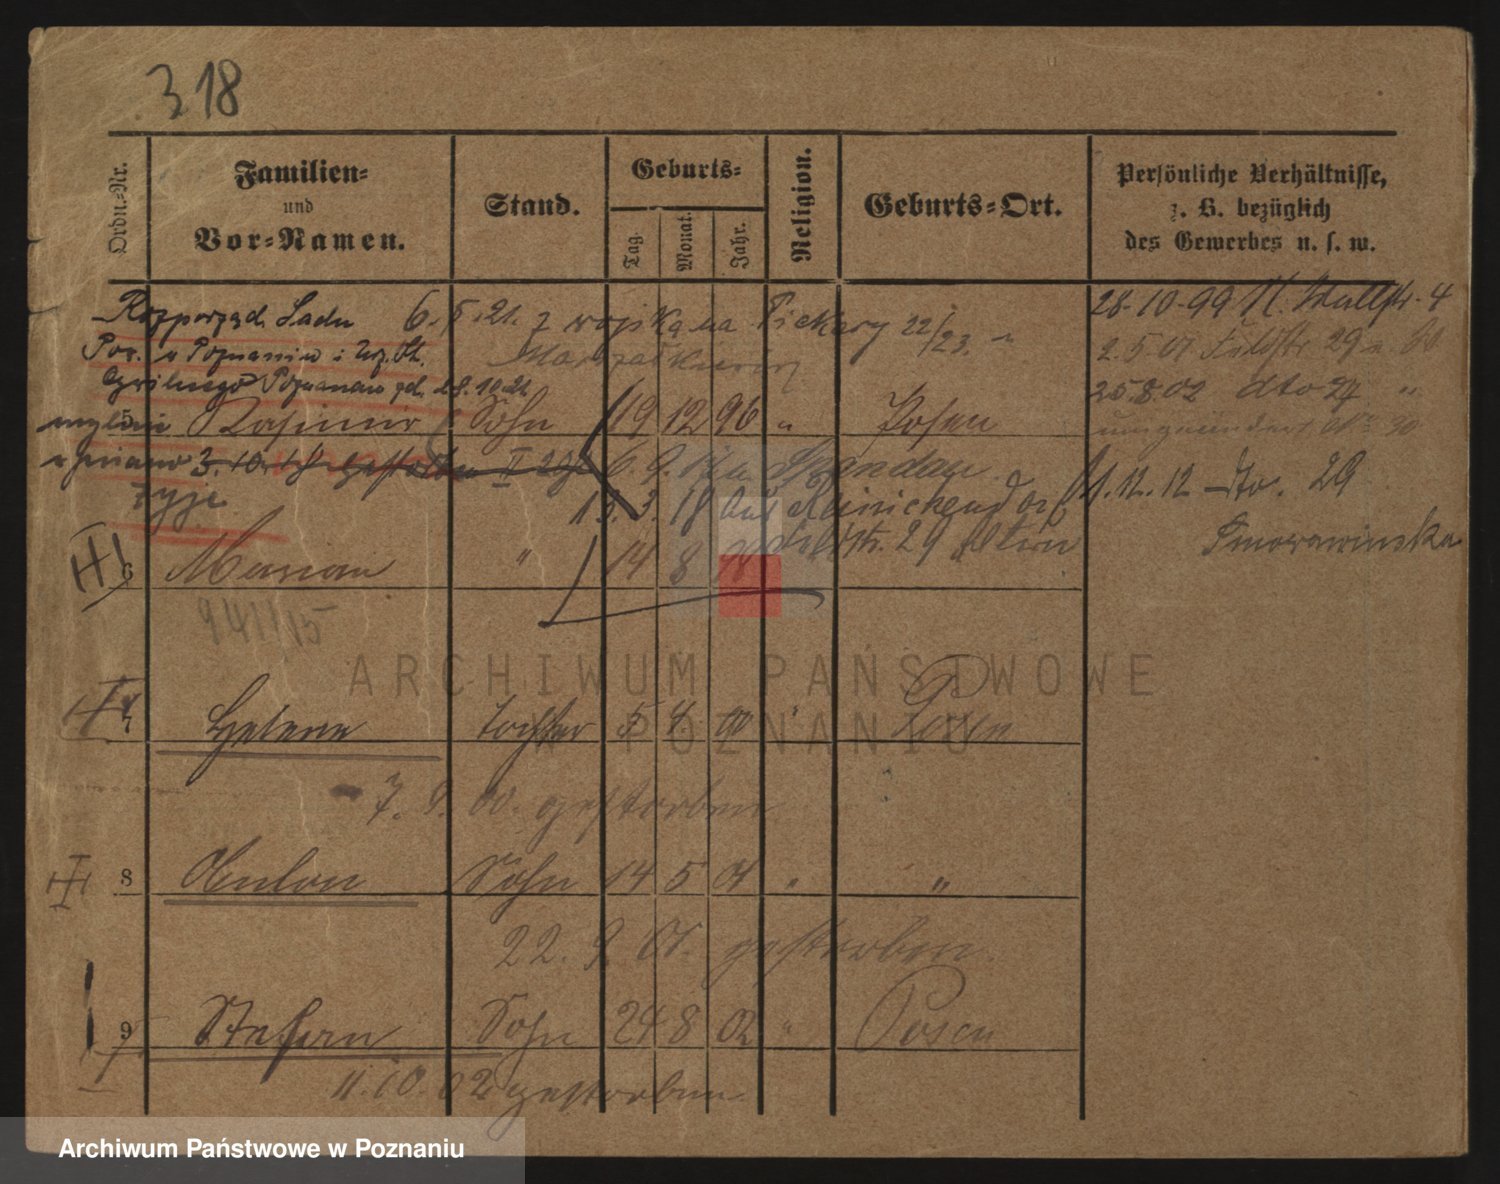 318
Ordn.-Nr.
Familien-
und
Vor-Namen.
Stand.
Geburts-
Tag.
Monat.
Jahr.
Religion.
Geburts-Ort.
Persönliche Verhältnisse,
z. B. bezüglich
des Gewerbes u. s. w.
Rozporząd. Sadu 6. 5. 21. z wojska na Piekary 22/23.
28-10-99 Wallstr. 4
Pow. w Poznaniu i Urz. St.
2.5.01 Feldstr. 29
Cywilnego Poznaniu 10.21
25.8.02 dto 27 "
5 mylnie Kasimir Sohn 19 12 96 " Posen
umgeändert 30
3. 10. 18 gestorben 6. 9. Spandau
1.12.12 dto. 29
żyje
13. 3. 18 aus Reinickendorf
Feldstr. 29 Eltern
Smorawinska
6 Marian " 14 8
941/15
7 Helene Tochter 5 4. 00 " Posen
ARCHIWUM PAŃSTWOWE
W POZNANIU
7. 9. 00. gestorben
8 Anton Sohn 14 5 01 " "
22. 9. 01. gestorben.
9 Stefan Sohn 24 8 02 " Posen
11.10.02 gestorben
Archiwum Państwowe w Poznaniu